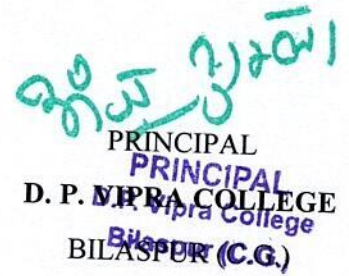 PRINCIPAL
PRINCIPAL
D. P. VIPRA COLLEGE
D.P. Vipra College
BILASPUR (C.G.)
Bilaspur (C.G.)